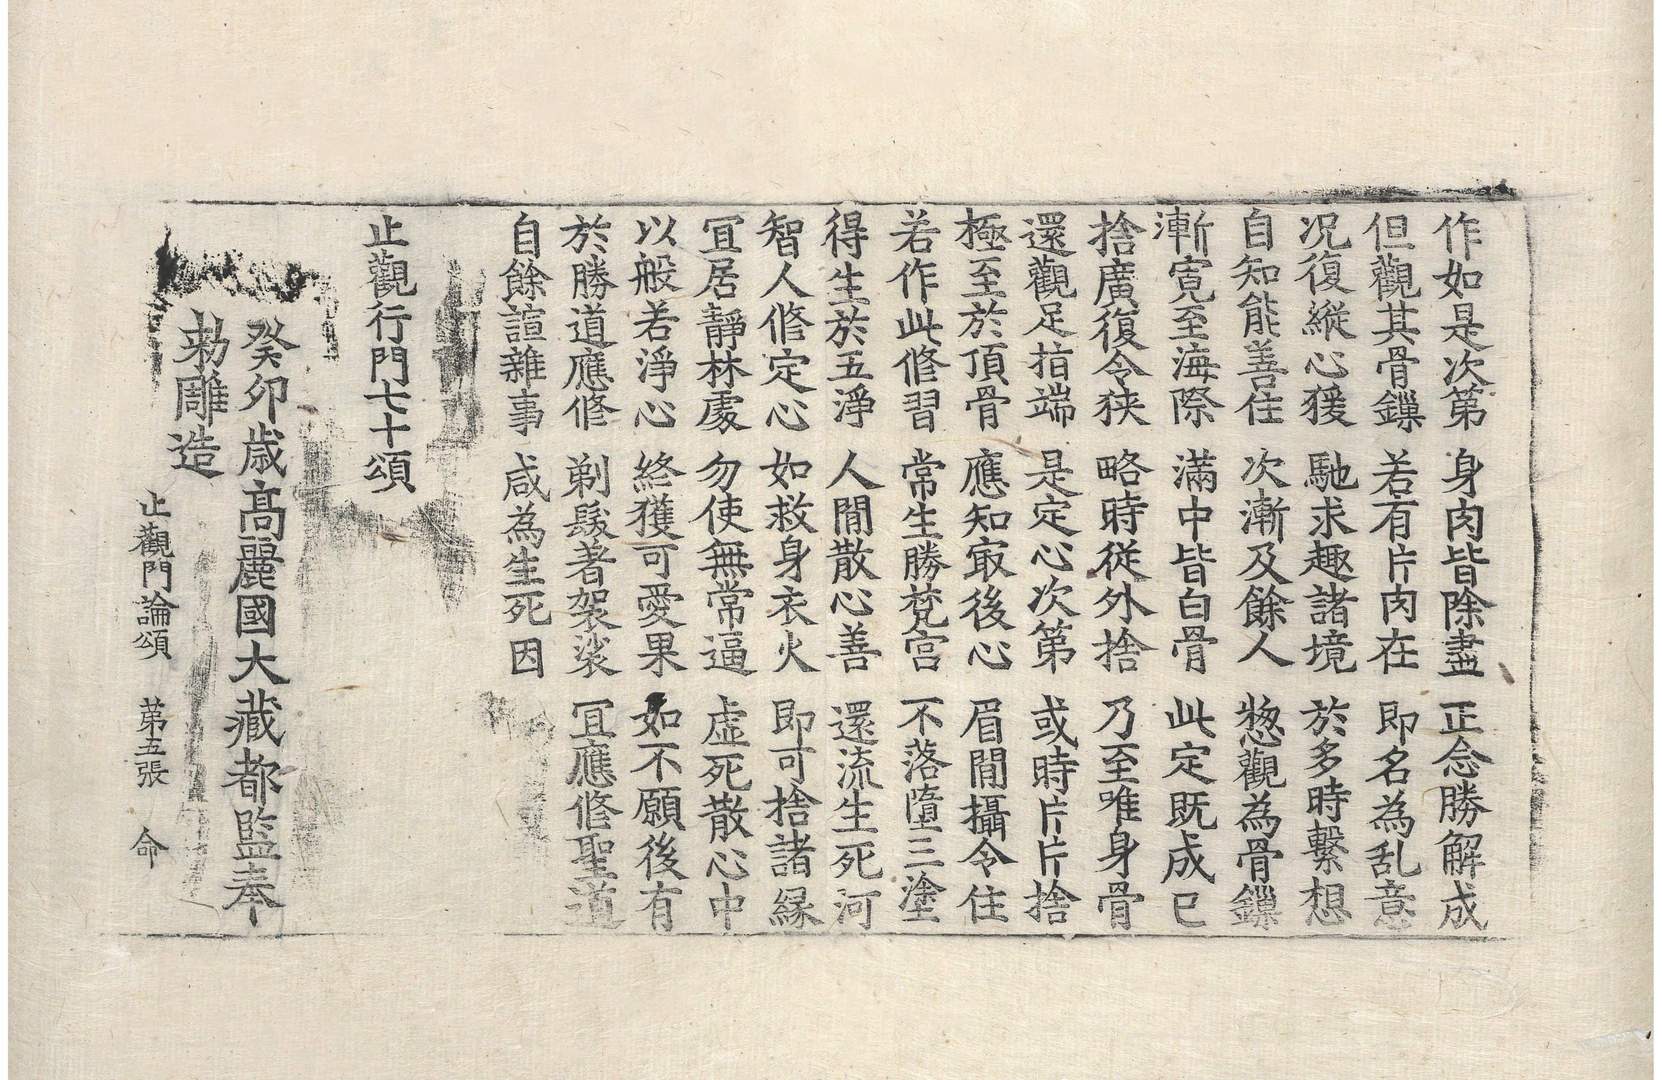 作如是次第　身肉皆除盡　正念勝解成
但觀其骨鏁　若有片肉在　即名為乱意
况復縱心猨　馳求趣諸境　於多時繫想
自知能善住　次漸及餘人　惣觀為骨鏁
漸寛至海際　滿中皆白骨　此定既成已
捨廣復令狹　略時從外捨　乃至唯身骨
還觀足指端　是定心次第　或時片片捨
極至於頂骨　應知㝡後心　眉間攝令住
若作此修習　常生勝梵宫　不落墮三塗
得生於五淨　人間散心善　還流生死河
智人修定心　如救身衣火　即可捨諸縁
冝居靜林處　勿使無常逼　虛死散心中
以般若淨心　終獲可愛果　如不願後有
於勝道應修　剃髮著袈裟　冝應修聖道
自餘諠雜事　咸為生死因
止觀行門七十頌
癸卯歲髙麗國大藏都監奉
勑雕造
止觀門論頌　第五張　命